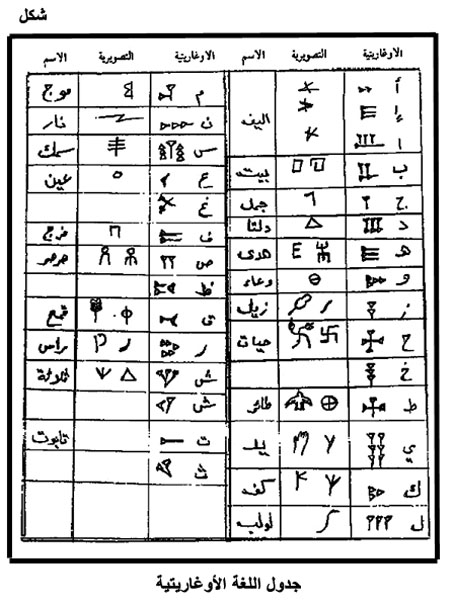 شكل
الاوغاريتية التصويرية الاسم الاوغاريتية التصويرية الاسم
أ
إ اليف
ا
ب بيت
ج جمل
د دلتا
هـ هدى
و وعاء
ز
ح حيات
خ
ط طائر
ي يد
ك كف
ل لولب
م موج
ن نار
س سمك
ع عين
غ
ف فرج
ص صرصر
ظ
ق قمح
ر راس
ش ثلاثة
ش
ت تابوت
ث
جدول اللغة الأوغاريتية